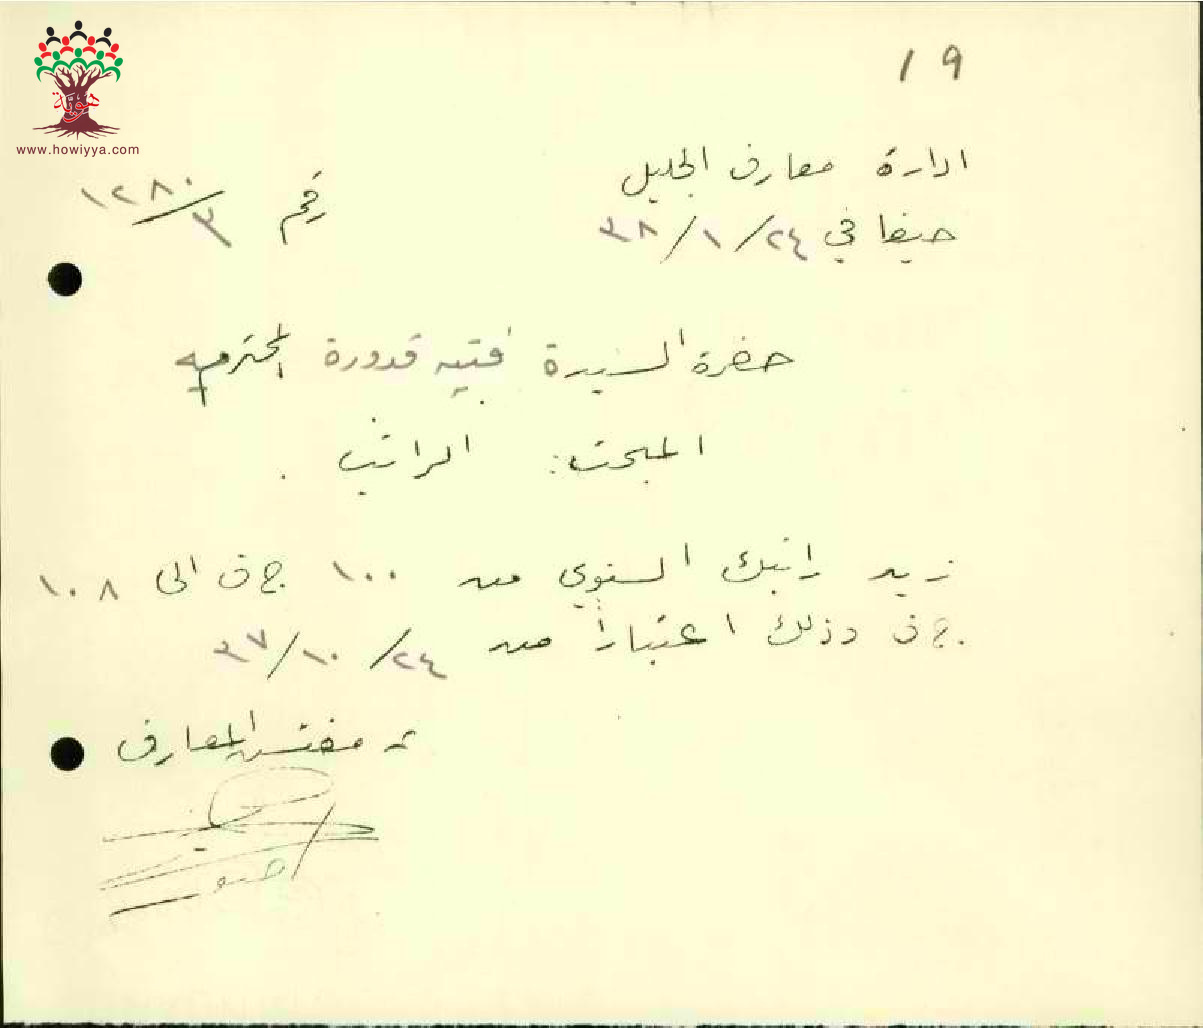 هوية
www.howiyya.com
١٩
ادارة معارف الجليل
رقم ١٢٨٠/٣
حيفا في ٢٤/١/٣٨
حضرة السيدة قدورة المحترمه
المبحث: الراتب.
زيد راتبك السنوي من ١٠٠ ج ف الى ١٠٨
ج ف وذلك اعتباراً من ٢٤/١٠/٣٧
مفتش المعارف